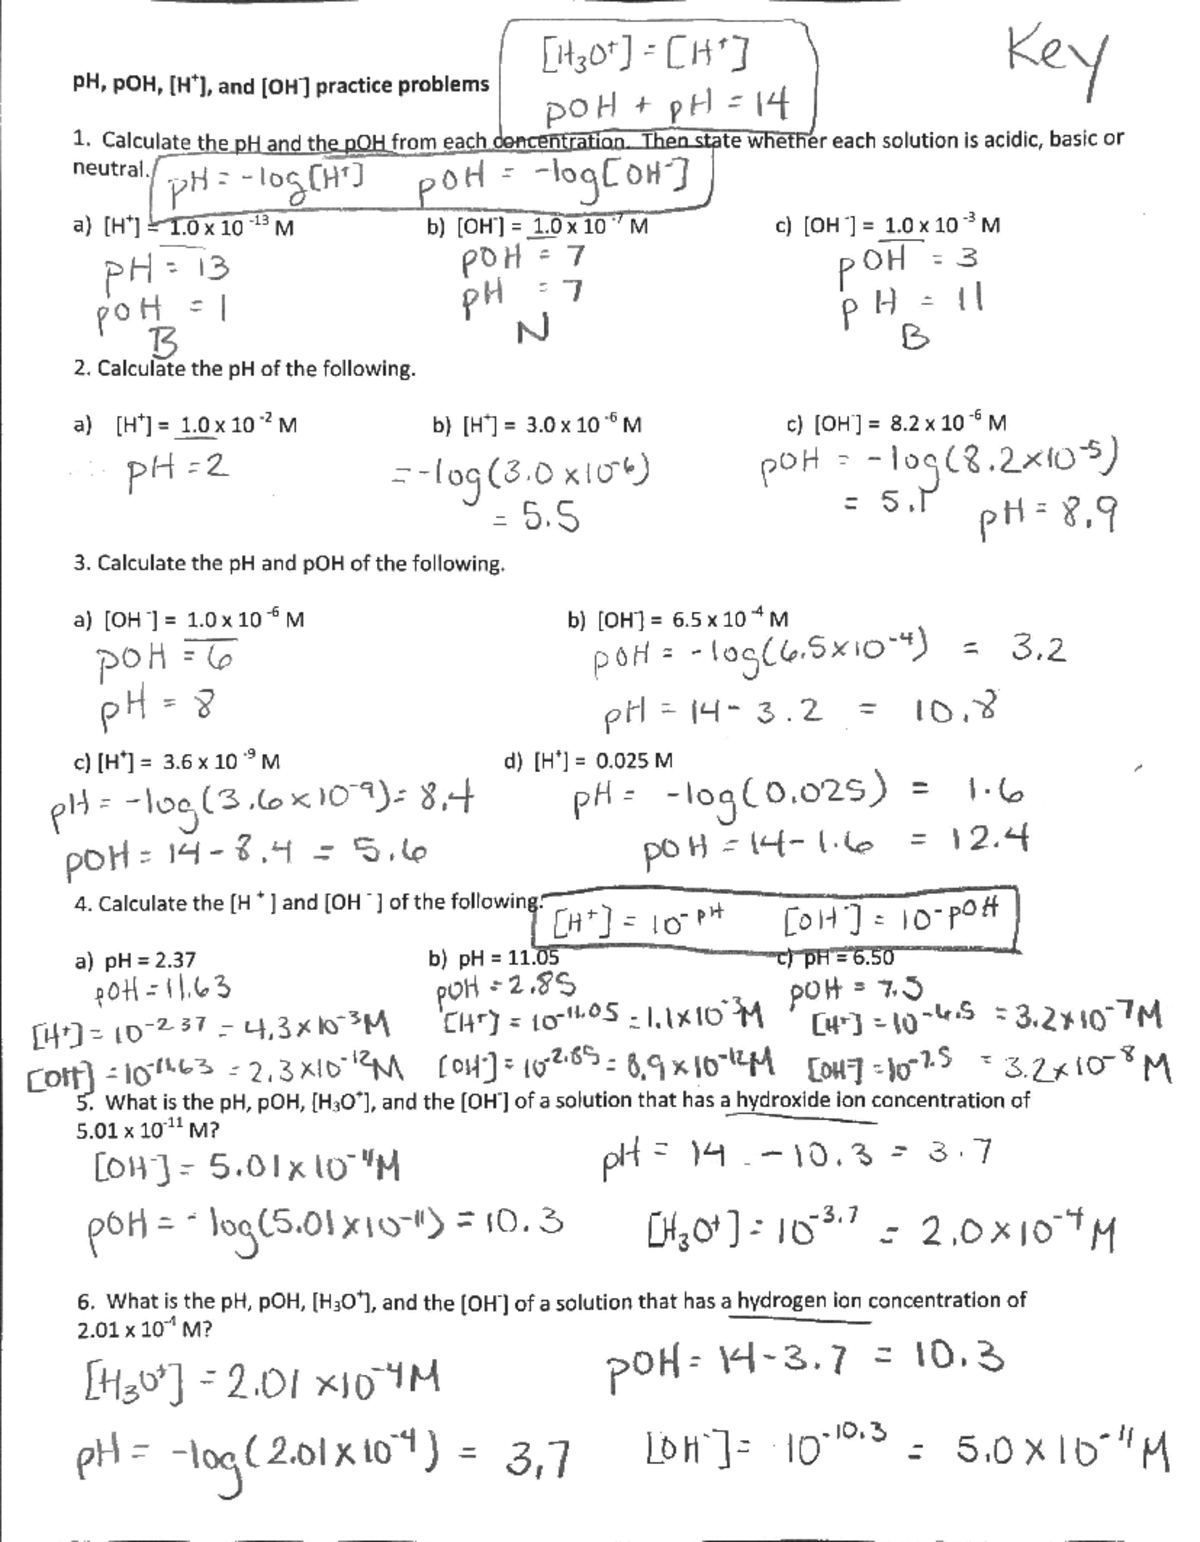 [H₃O⁺] = [H⁺]
Key
pH, pOH, [H⁺], and [OH⁻] practice problems
pOH + pH = 14
1. Calculate the pH and the pOH from each concentration. Then state whether each solution is acidic, basic or
neutral.
pH = -log[H⁺] pOH = -log[OH⁻]
a) [H⁺] = 1.0 x 10⁻¹³ M b) [OH⁻] = 1.0 x 10⁻⁷ M c) [OH⁻] = 1.0 x 10⁻³ M
pH = 13 pOH = 7 pOH = 3
pOH = 1 pH = 7 pH = 11
B N B
2. Calculate the pH of the following.
a) [H⁺] = 1.0 x 10⁻² M b) [H⁺] = 3.0 x 10⁻⁶ M c) [OH⁻] = 8.2 x 10⁻⁶ M
pH = 2 = -log(3.0 x10⁻⁶) pOH = -log(8.2x10⁻⁵)
= 5.5 = 5.1 pH = 8.9
3. Calculate the pH and pOH of the following.
a) [OH⁻] = 1.0 x 10⁻⁶ M b) [OH⁻] = 6.5 x 10⁻⁴ M
pOH = 6 pOH = -log(6.5x10⁻⁴) = 3.2
pH = 8 pH = 14 - 3.2 = 10.8
c) [H⁺] = 3.6 x 10⁻⁹ M d) [H⁺] = 0.025 M
pH = -log(3.6x10⁻⁹) = 8.4 pH = -log(0.025) = 1.6
pOH = 14 - 8.4 = 5.6 pOH = 14 - 1.6 = 12.4
4. Calculate the [H⁺] and [OH⁻] of the following:
[H⁺] = 10⁻ᵖᴴ [OH⁻] = 10⁻ᵖᴼᴴ
a) pH = 2.37 b) pH = 11.05 c) pH = 6.50
pOH = 11.63 pOH = 2.85 pOH = 7.5
[H⁺] = 10⁻²·³⁷ = 4.3x10⁻³M [H⁺] = 10⁻¹¹·⁰⁵ = 1.1x10⁻³M [H⁺] = 10⁻⁶·⁵ = 3.2x10⁻⁷M
[OH⁻] = 10⁻¹¹·⁶³ = 2.3x10⁻¹²M [OH⁻] = 10⁻²·⁸⁵ = 8.9x10⁻¹²M [OH⁻] = 10⁻⁷·⁵ = 3.2x10⁻⁸M
5. What is the pH, pOH, [H₃O⁺], and the [OH⁻] of a solution that has a hydroxide ion concentration of
5.01 x 10⁻¹¹ M?
[OH⁻] = 5.01x10⁻¹¹M pH = 14 - 10.3 = 3.7
pOH = -log(5.01x10⁻¹¹) = 10.3 [H₃O⁺] = 10⁻³·⁷ = 2.0x10⁻⁴M
6. What is the pH, pOH, [H₃O⁺], and the [OH⁻] of a solution that has a hydrogen ion concentration of
2.01 x 10⁻⁴ M?
[H₃O⁺] = 2.01 x10⁻⁴M pOH = 14-3.7 = 10.3
pH = -log(2.01x10⁻⁴) = 3.7 [OH⁻] = 10⁻¹⁰·³ = 5.0x10⁻¹¹M